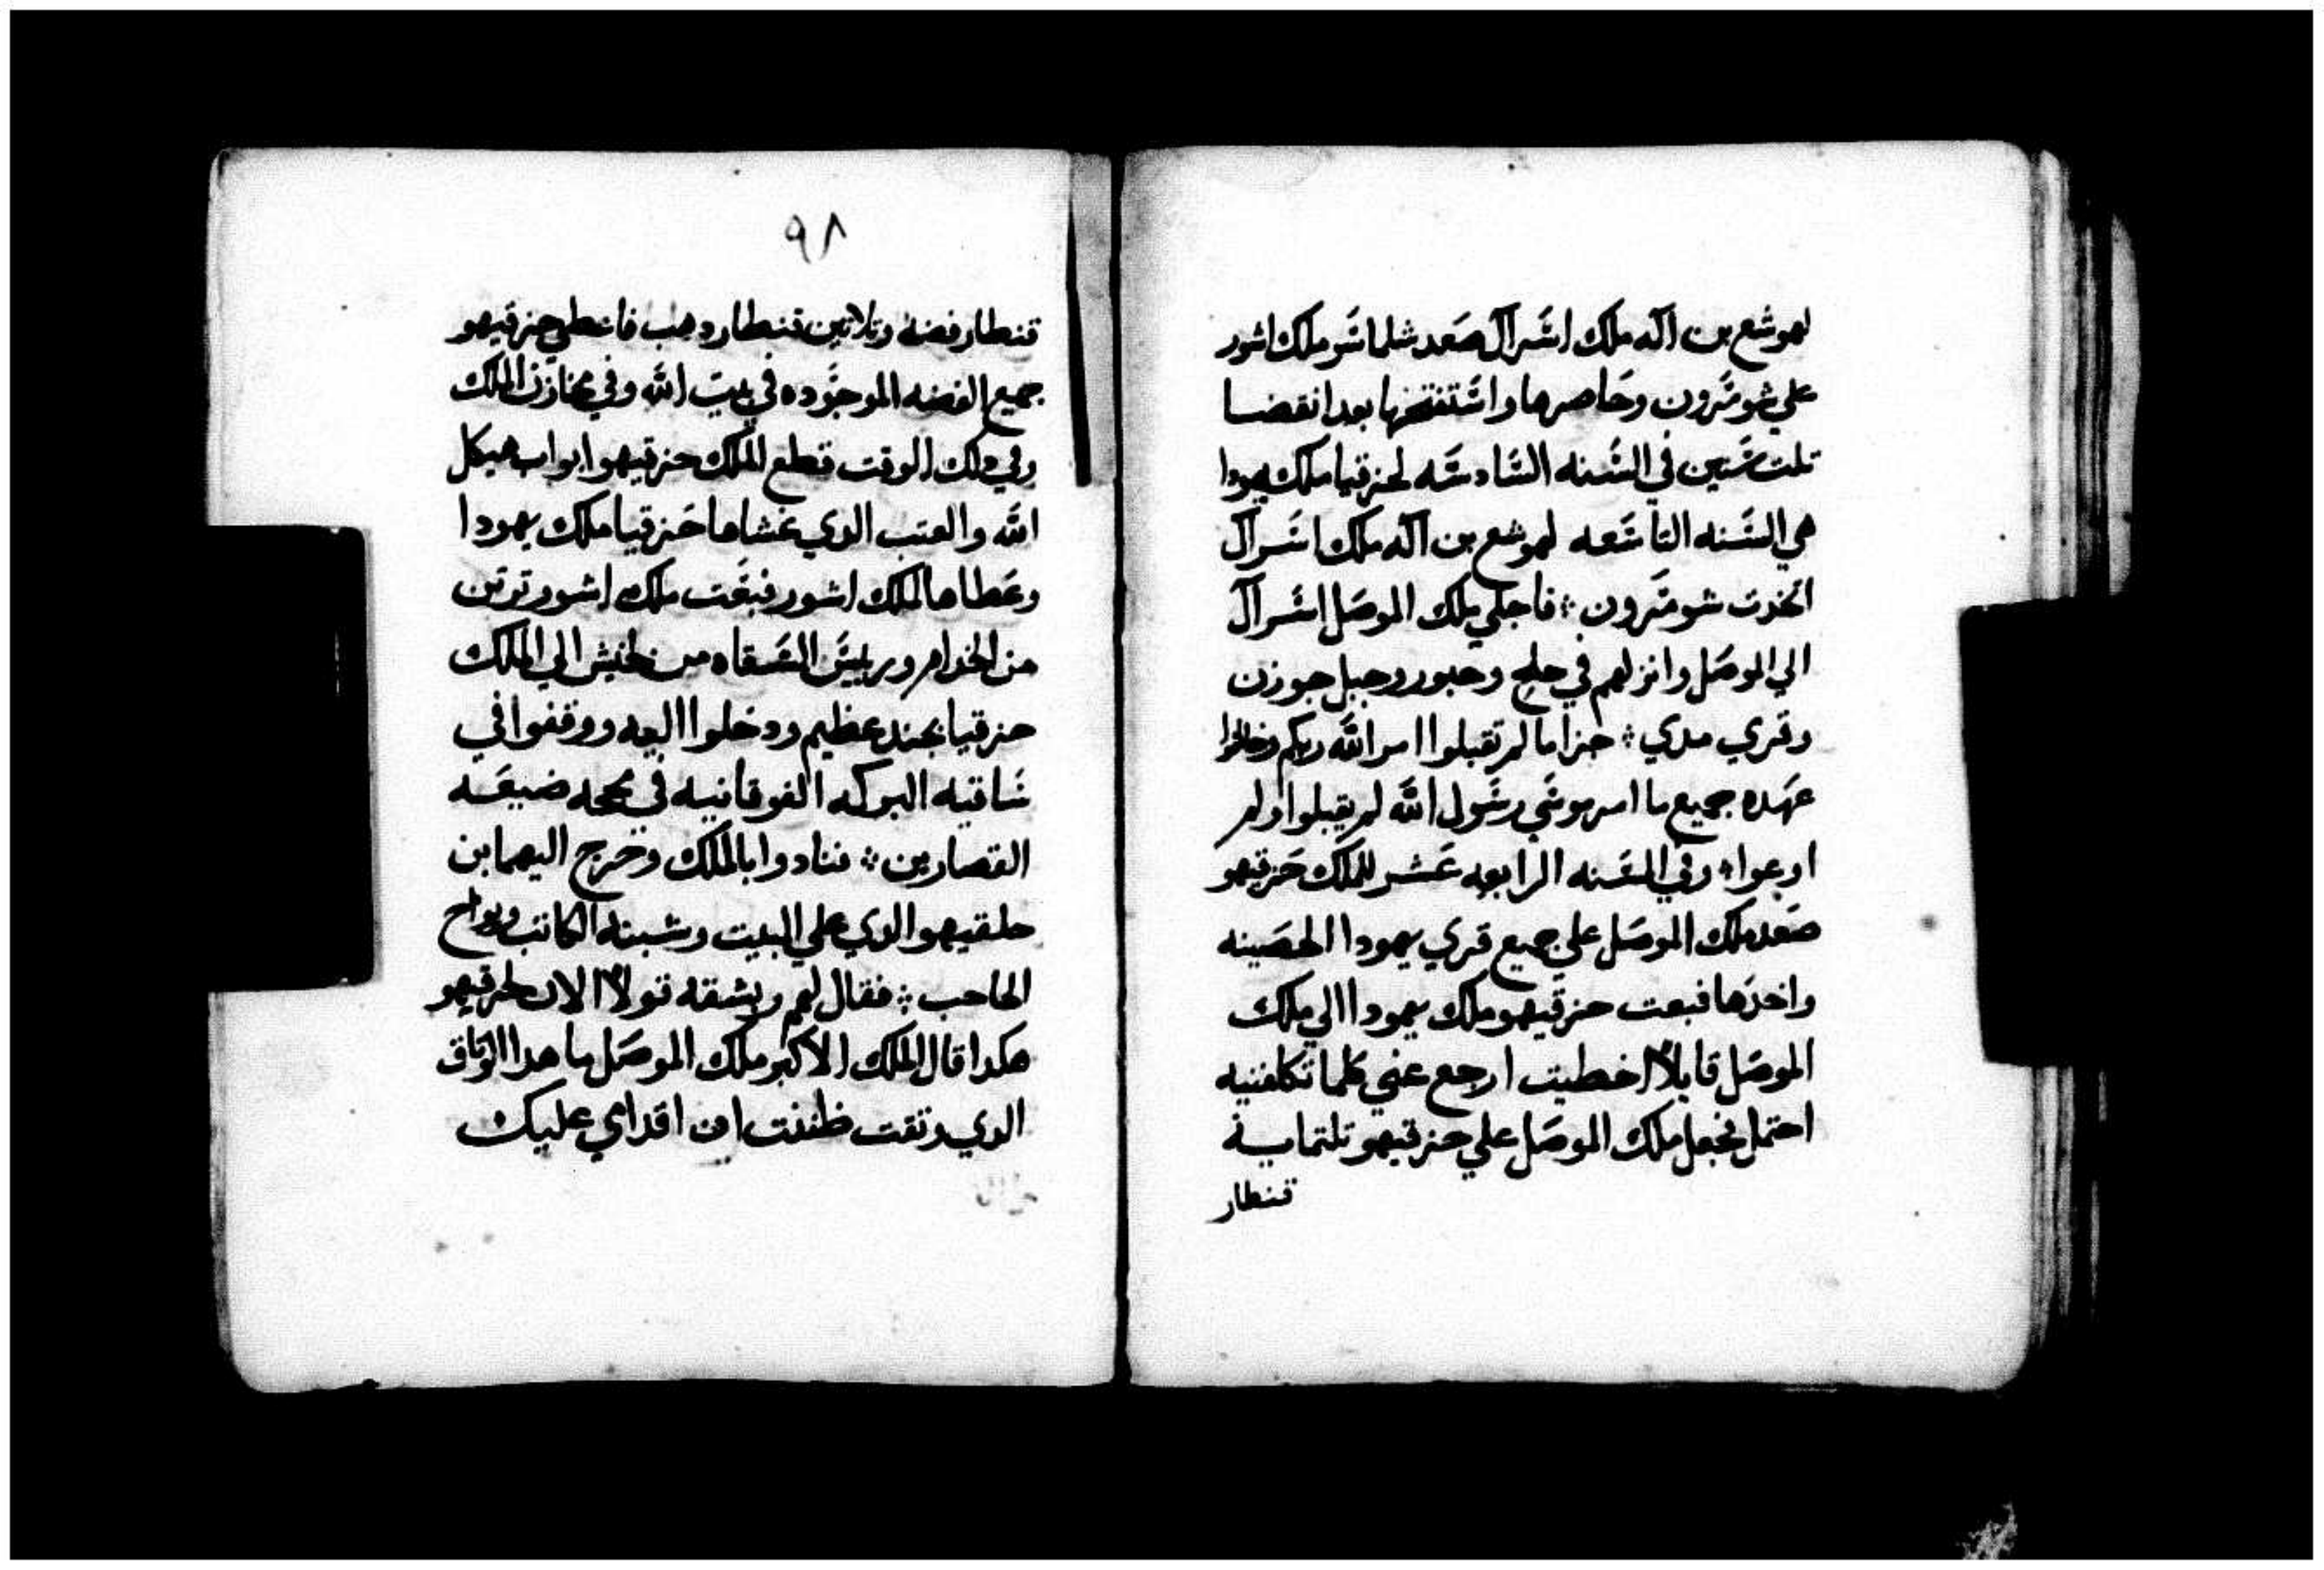 لهوشع بن اله ملك اسرال صعد شلماسر ملك اشور
علي شومرون وحاصرها واستفتحها بعد انقضا
تلت سنين في السنه السادسه لحزقيا ملك يهودا
هي السنه التاسعه لهوشع بن اله ملك اسرال
اتخدت شومرون ؞ فاجلي ملك الموصل اسرال
الي الموصل وانزلهم في حلح وحبور وجبل جوزن
وقري مدي ؞ جزا ما لم تقبلوا امر الله ربكم وخالفوا
عهده جميع ما امر موسي رسول الله لم يقبلوا ولم
اوعوا ؞ وفي السنه الرابعه عشر للملك حزقيهو
صعد ملك الموصل علي جميع قري يهودا الحصينه
واخدها فبعت حزقيهو ملك يهودا الي ملك
الموصل قايلا اخطيت ارجع عني كلما تكلفنيه
احتمل فجعل ملك الموصل علي حزقيهو تلتمايه
قنطار
٩٨
قنطار فضه وتلاتين قنطار دهب فاعطي حزقيهو
جميع الفضه الموجوده في بيت الله وفي مخازن الملك
وفي دلك الوقت قطع الملك حزقيهو ابواب هيكل
الله والعتب الدي غشاها حزقيا ملك يهودا
وعطاها لملك اشور فبعت ملك اشور ترتن
من الخدام وريس السقاه من لخيش الي الملك
حزقيا بجند عظيم ودخلوا اليه ووقفوا في
ساقيه البركه الفوقانيه في محجه ضيعه
القصارين ؞ فنادوا بالملك وخرج اليهما بن
حلقيهو الدي علي البيت وشبنه الكاتب ويواح
الحاجب ؞ فقال لهم ربشقه قولا الان لحزقيهو
هكدا قال الملك الاكبر ملك الموصل ما هدا الوتاق
الدي وتقت ظننت ان اقداي عليك